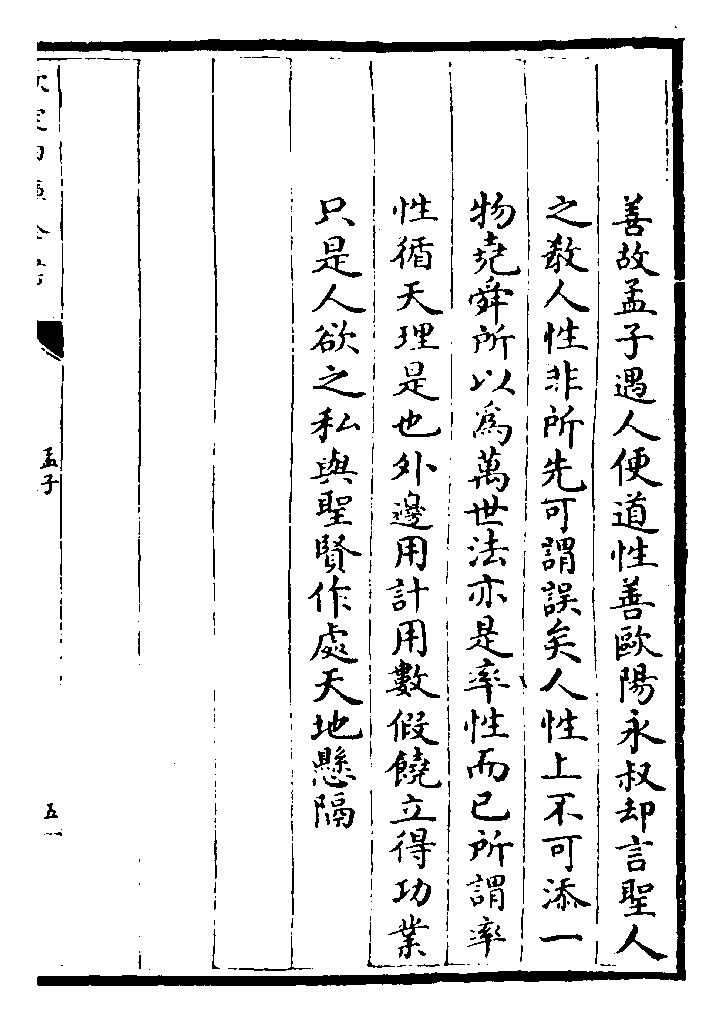 善故孟子遇人便道性善歐陽永叔却言聖人
之教人性非所先可謂誤矣人性上不可添一
物堯舜所以為萬世法亦是率性而已所謂率
性循天理是也外邊用計用數假饒立得功業
只是人欲之私與聖賢作處天地懸隔
欽定四庫全書
孟子
五